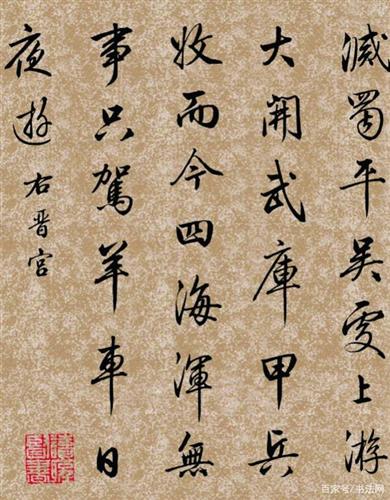 滅蜀平吳上游
大開武庫甲兵
收而今四海渾無
事只駕羊車日
夜遊
右晋宮
百家号/书法网